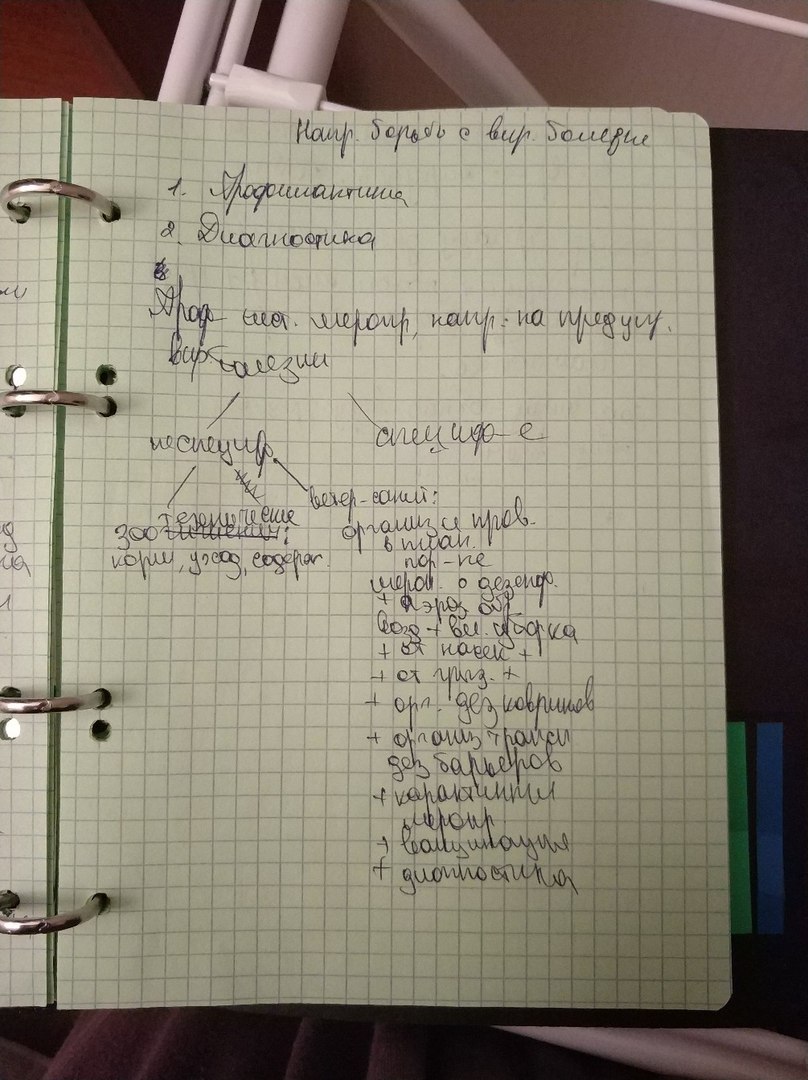 Напр. борьбы с вир. болезн
1. Профилактика
2. Диагностика
Проф- сист. меропр, напр. на предупр.
вир. болезни
неспециф.
специф-е
ветер-санит:
технические
зоо
корм, уход, содерж.
организ и пров.
в план.
пор-ке
мероп. о дезенф.
+ аэроз обр
возд + вл. уборка
+ от насек +
+ от грыз. +
+ орг. дез ковриков
+ организ трансп
дез барьеров
+ карантинн
меропр
+ вакцинация
+ диагностика